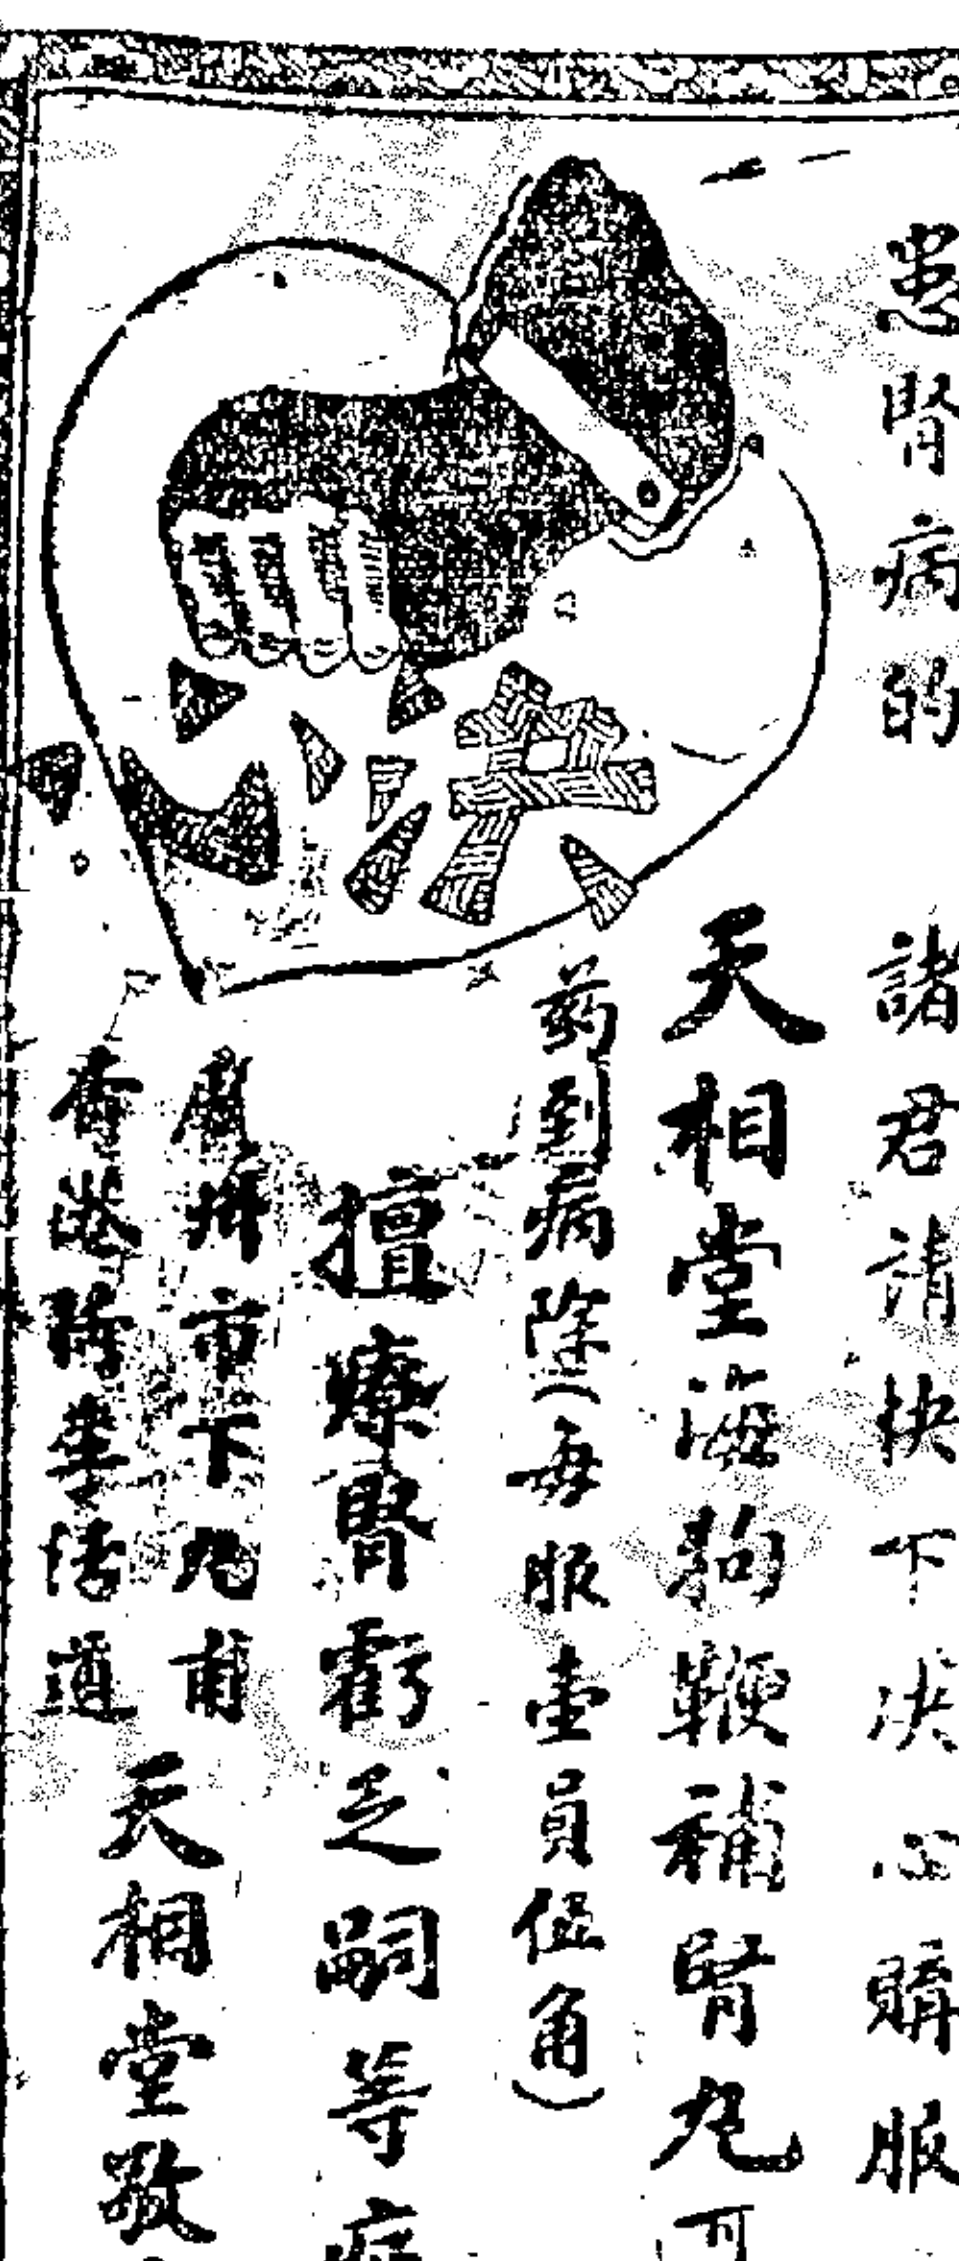 患腎病的
諸君請快下决心購服
天相堂海狗鞭補腎丸可
药到病除(每服壹員伍角)
擅療腎虧乏嗣等症
廣州市下九甫
香港 道
天相堂敬
决心